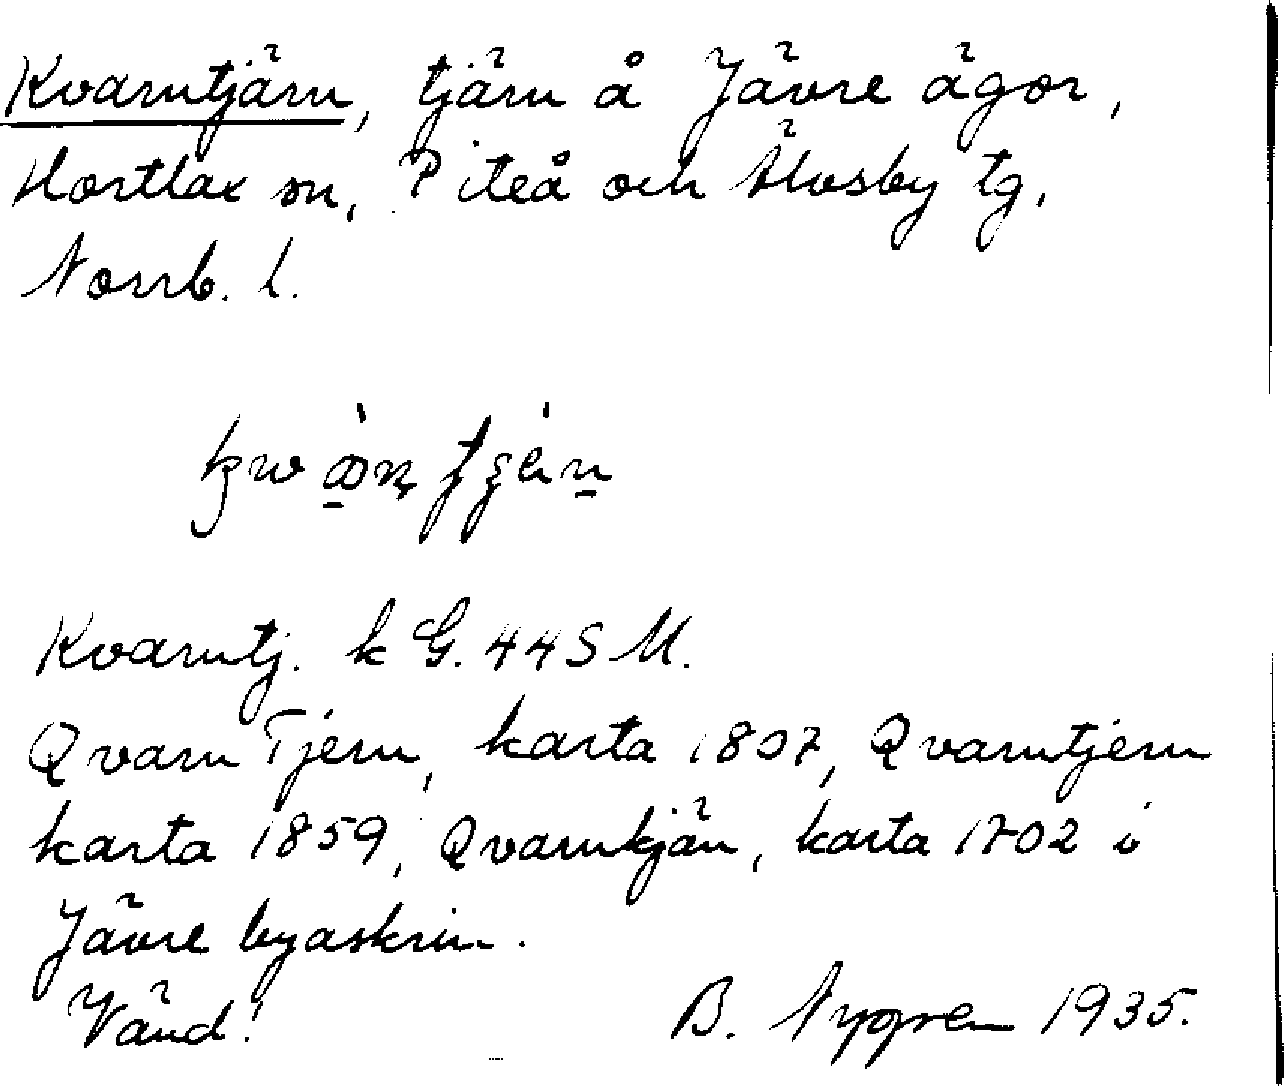 Kvarntjärn, tjärn å Jävre ägor,
Hortlax sn, Piteå och Älvsby tg,
Norrb. l.
Kvarntj. k G. 44 S M.
Qvarn Tjern, karta 1807, Qvarntjern
karta 1859, Qvarnkjän, karta 1702 i
Jävre byaskrin.
Vänd! B. Nygren 1935.